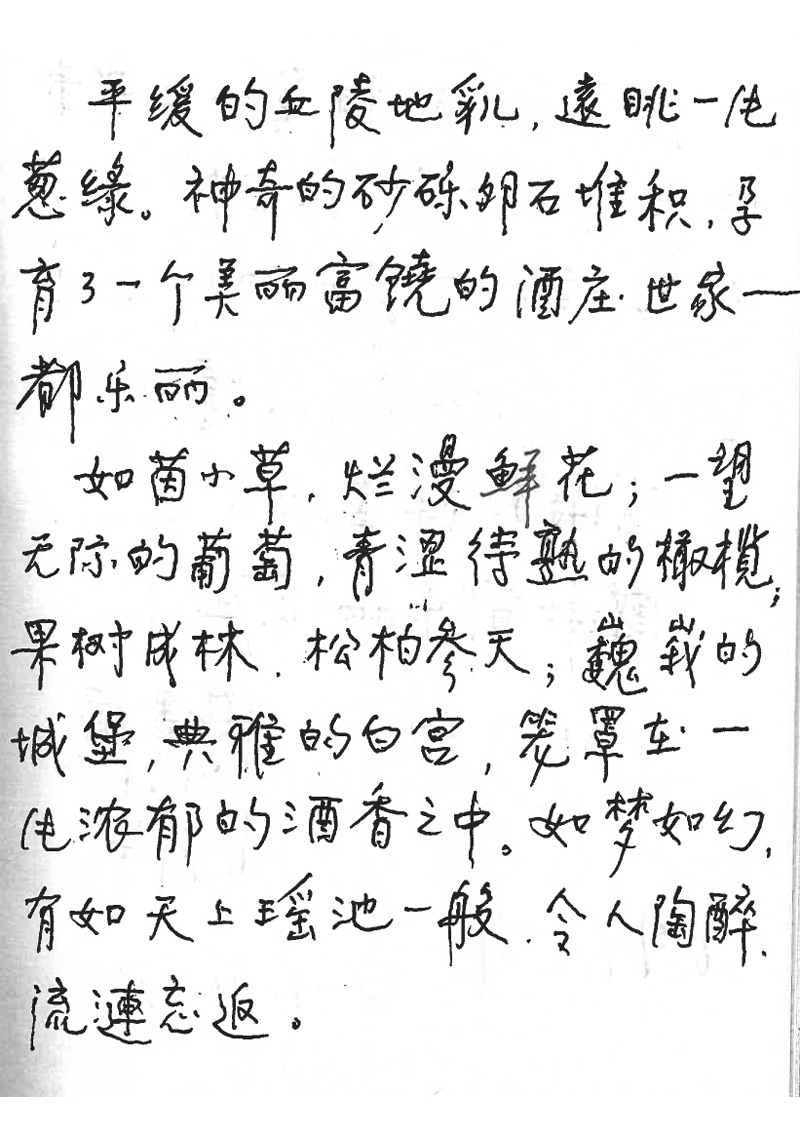 平缓的丘陵地乳，遠眺一片
葱绿。神奇的砂砾卵石堆积，孕
育了一个美丽富饒的酒庄世家——
都乐丽。
如茵小草，烂漫鲜花；一望
无际的葡萄，青涩待熟的橄榄；
果树成林，松柏参天；巍峩的
城堡，典雅的白宫，笼罩在一
片浓郁的酒香之中。如梦如幻，
有如天上瑶池一般，令人陶醉，
流漣忘返。